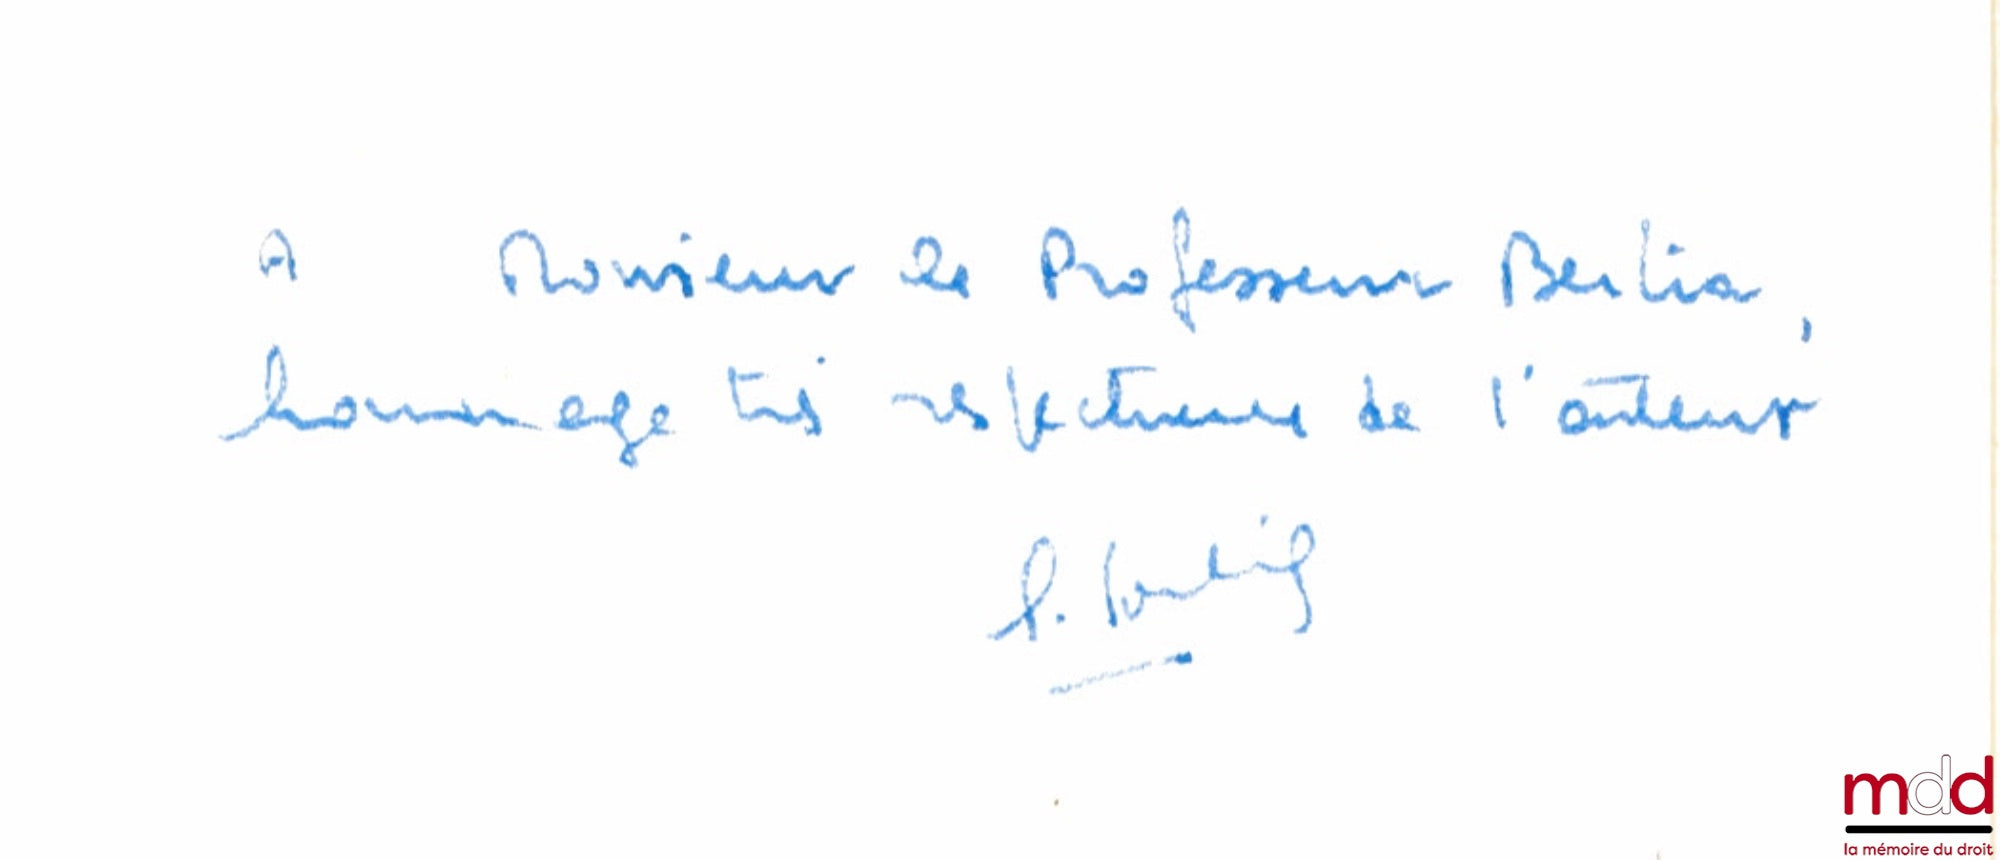 A Monsieur le Professeur Berlia,
hommage très respectueux de l'auteur
mdd
la mémoire du droit